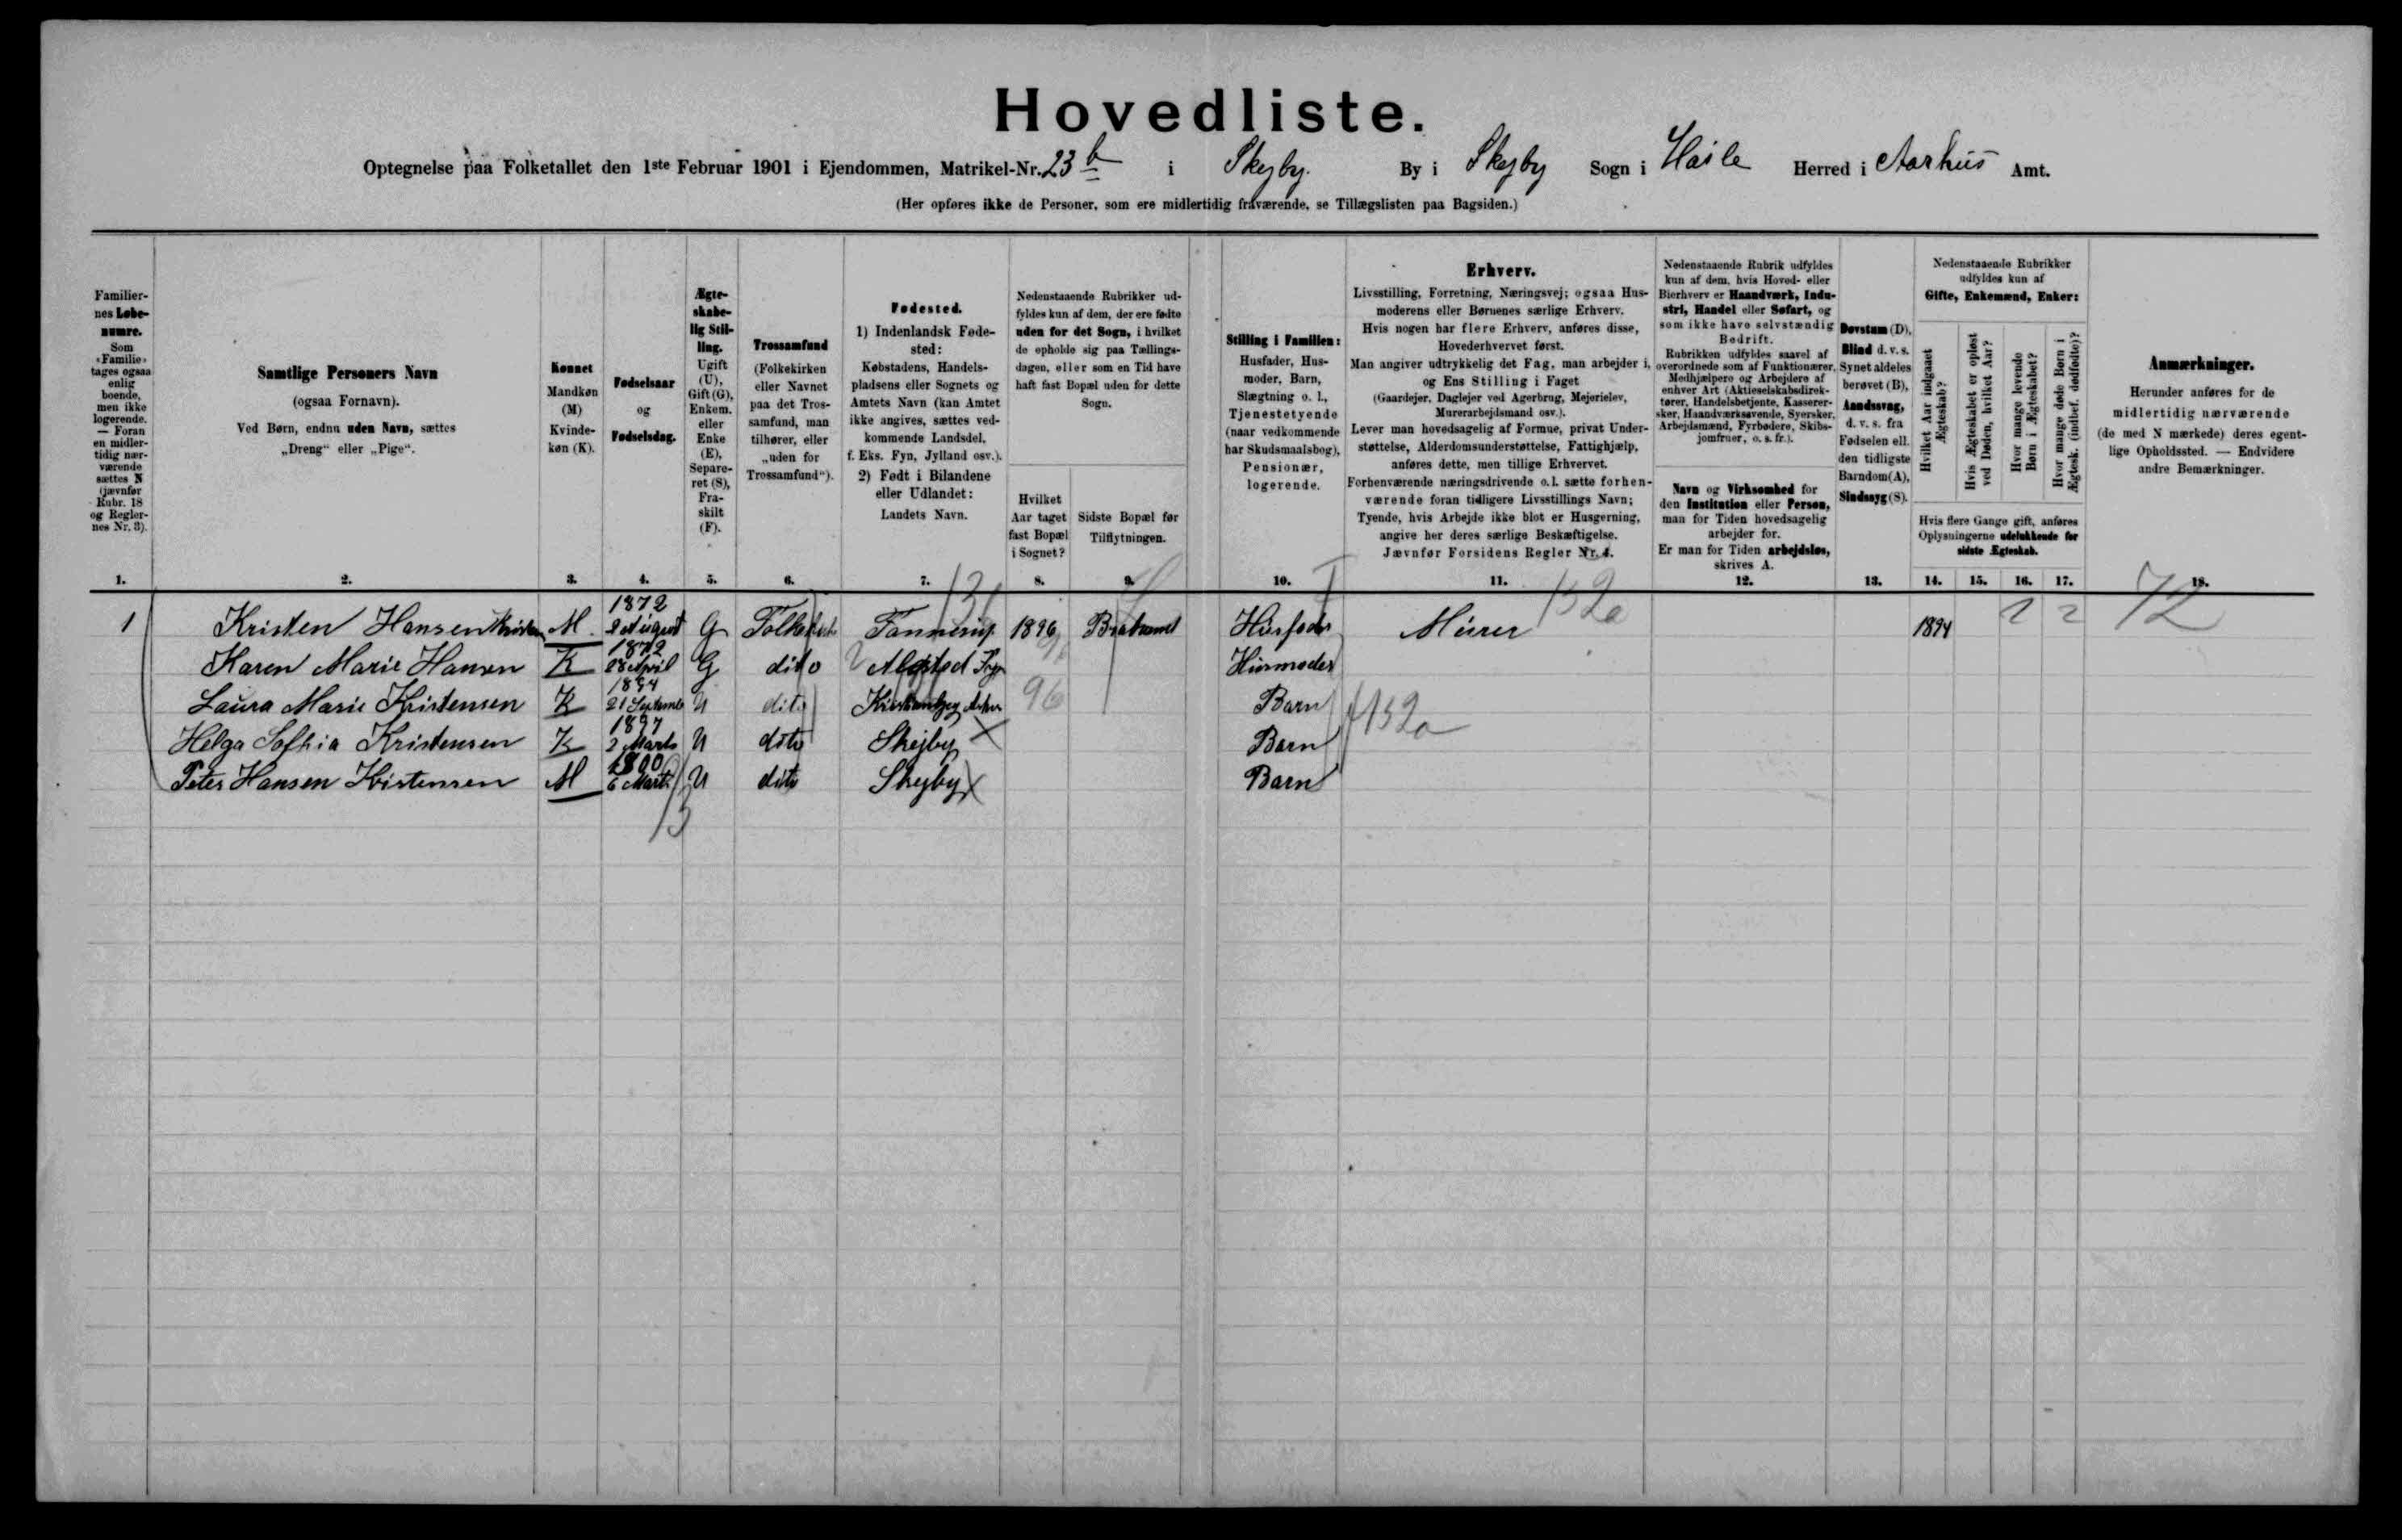 Hovedliste.
Optegnelse paa Folketallet den 1ste Februar 1901 i Ejendommen, Matrikel-Nr. 23 b i Skejby. By i Skejby Sogn i Hasle Herred i Aarhus Amt.
(Her opføres ikke de Personer, som ere midlertidig fraværende, se Tillægslisten paa Bagsiden.)
Familier-
nes Løbe-
numre.
Som
«Familie»
tages ogsaa
enlig
boende,
men ikke
logerende.
— Foran
en midler-
tidig nær-
værende
sættes N
(jævnfør
Rubr. 18
og Regler-
nes Nr. 3).
1.
Samtlige Personers Navn
(ogsaa Fornavn).
Ved Børn, endnu uden Navn, sættes
„Dreng“ eller „Pige“.
2.
Kønnet
Mandkøn
(M)
Kvinde-
køn (K).
3.
Fødselsaar
og
Fødselsdag.
4.
Ægte-
skabe-
lig Stil-
ling.
Ugift
(U),
Gift (G),
Enkem.
eller
Enke
(E),
Separe-
ret (S),
Fra-
skilt
(F).
5.
Trossamfund
(Folkekirken
eller Navnet
paa det Tros-
samfund, man
tilhører, eller
„uden for
Trossamfund“).
6.
Fødested.
1) Indenlandsk Føde-
sted:
Købstadens, Handels-
pladsens eller Sognets og
Amtets Navn (kan Amtet
ikke angives, sættes ved-
kommende Landsdel,
f. Eks. Fyn, Jylland osv.).
2) Født i Bilandene
eller Udlandet:
Landets Navn.
7.
Nedenstaaende Rubrikker ud-
fyldes kun af dem, der ere fødte
uden for det Sogn, i hvilket
de opholde sig paa Tællings-
dagen, eller som en Tid have
haft fast Bopæl uden for dette
Sogn.
Hvilket
Aar taget
fast Bopæl
i Sognet?
8.
Sidste Bopæl før
Tilflytningen.
9.
Stilling i Familien:
Husfader, Hus-
moder, Barn,
Slægtning o. l.,
Tjenestetyende
(naar vedkommende
har Skudsmaalsbog),
Pensionær,
logerende.
10.
Erhverv.
Livsstilling, Forretning, Næringsvej; ogsaa Hus-
moderens eller Børnenes særlige Erhverv.
Hvis nogen har flere Erhverv, anføres disse,
Hovederhvervet først.
Man angiver udtrykkelig det Fag, man arbejder i,
og Ens Stilling i Faget
(Gaardejer, Daglejer ved Agerbrug, Mejerielev,
Murerarbejdsmand osv.).
Lever man hovedsagelig af Formue, privat Under-
støttelse, Alderdomsunderstøttelse, Fattighjælp,
anføres dette, men tillige Erhvervet.
Forhenværende næringsdrivende o.l. sætte forhen-
værende foran tidligere Livsstillings Navn;
Tyende, hvis Arbejde ikke blot er Husgerning,
angive her deres særlige Beskæftigelse.
Jævnfør Forsidens Regler Nr. 4.
11.
Nedenstaaende Rubrik udfyldes
kun af dem, hvis Hoved- eller
Bierhverv er Haandværk, Indu-
stri, Handel eller Søfart, og
som ikke have selvstændig
Bedrift.
Rubrikken udfyldes saavel af
overordnede som af Funktionærer,
Medhjælpere og Arbejdere af
enhver Art (Aktieselskabsdirek-
tører, Handelsbetjente, Kasserer-
sker, Haandværkssvende, Syersker,
Arbejdsmænd, Fyrbødere, Skibs-
jomfruer, o. s. fr.).
Navn og Virksomhed for
den Institution eller Person,
man for Tiden hovedsagelig
arbejder for.
Er man for Tiden arbejdsløs,
skrives A.
12.
Døvstum (D),
Blind d. v. s.
Synet aldeles
berøvet (B),
Aandssvag,
d. v. s. fra
Fødselen ell.
den tidligste
Barndom (A),
Sindssyg (S).
13.
Nedenstaaende Rubrikker
udfyldes kun af
Gifte, Enkemænd, Enker:
Hvilket Aar indgaaet
Ægteskab?
Hvis Ægteskabet er opløst
ved Døden, hvilket Aar?
Hvor mange levende
Børn i Ægteskabet?
Hvor mange døde Børn i
Ægtesk. (indbef. dødfødte)?
Hvis flere Gange gift, anføres
Oplysningerne udelukkende for
sidste Ægteskab.
14. 15. 16. 17.
Anmærkninger.
Herunder anføres for de
midlertidig nærværende
(de med N mærkede) deres egent-
lige Opholdssted. — Endvidere
andre Bemærkninger.
18.
1 Kristen Hansen M 1872 August G 1896 Husfader Murer 152a 1894 2 2 72
Karen Marie Hansen K 1872 28 April G dito Husmoder
Laura Marie Kristensen K 1894 21 Septemb U dito 96 Barn 152a
Helga Sofhia Kristensen K 1897 2 Marts U dito Skejby Barn
Peter Hansen Kristensen M 1900 6 Marts U dito Skejby Barn